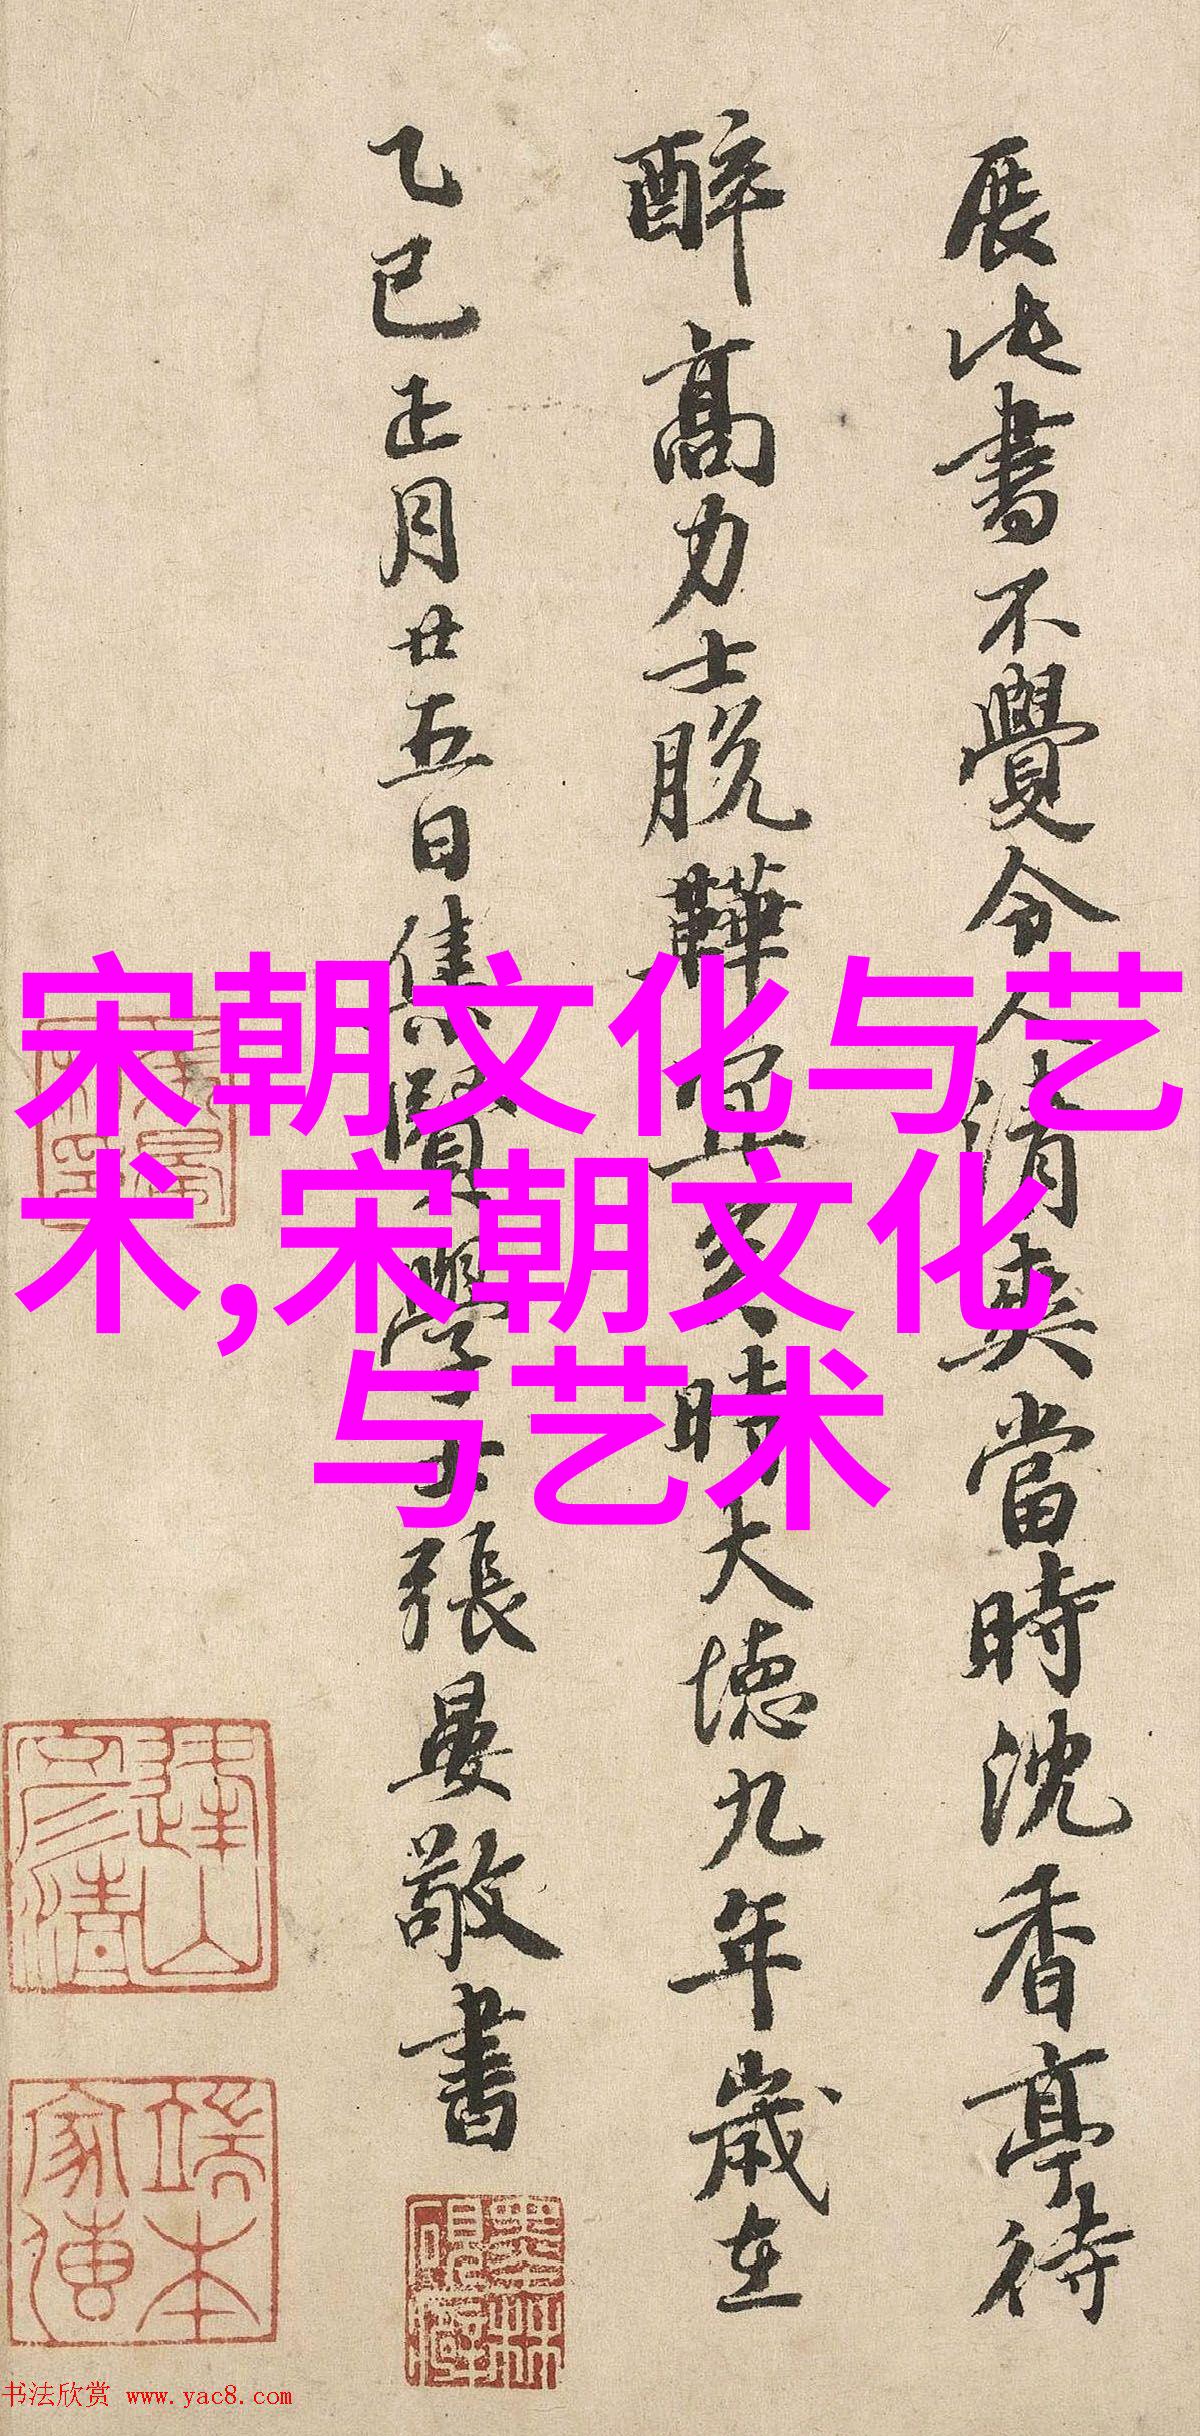 展此書不覺令人清爽當時沈香亭待
醉高力士脱鞾宜矣時大德九年歲在
乙巳正月廿五日集賢學士張晏敬書
宋朝文化与艺
术,宋朝文化
与艺术
端本
家傳
书法欣赏 www.yac8.com